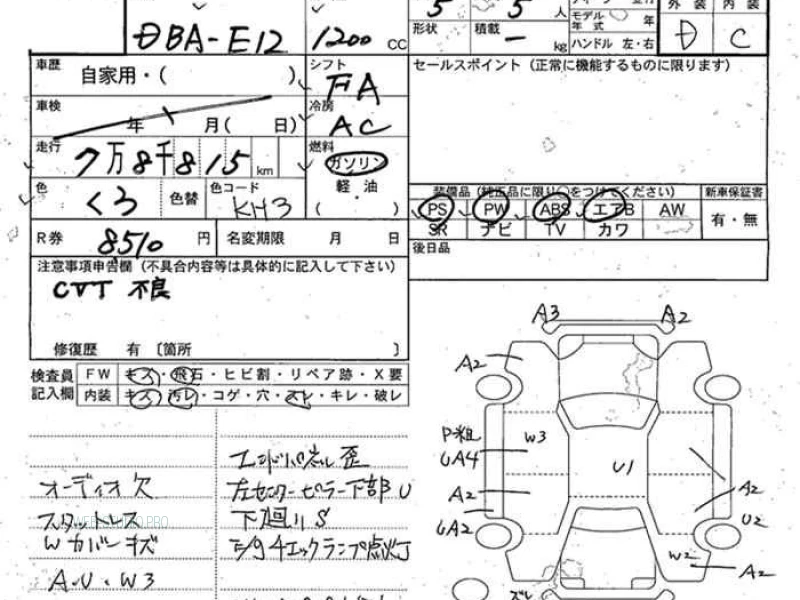 5 5 人
形状 積載 ー kg
モデル年式 年
ハンドル 左・右
外装 内装
D C
DBA-E12 1200 CC
車歴 自家用・( )
シフト FA
セールスポイント(正常に機能するものに限ります)
車検 年 月( 日)
冷房 AC
走行 7万8千815 km
燃料 ガソリン
軽油
( )
色 くろ 色替 色コード KH3
装備品(純正品に限り○をつけてください) 新車保証書
PS PW ABS エアB AW 有・無
SR ナビ TV カワ
R券 8510 円 名変期限 月 日
後日品
注意事項申告欄(不具合内容等は具体的に記入して下さい)
CVT 不良
修復歴 有〔箇所 〕
検査員記入欄
FW キズ・飛石・ヒビ割・リペア跡・X要
内装 キズ・汚レ・コゲ・穴・スレ・キレ・破レ
オーディオ欠
スタットレス
Wカバーキズ
A・U・W3
エンドパネル歪
左センターピラー下部U
下廻りS
エンジンチェックランプ点灯
A3 A2
A2
P粗
UA4
W3
U1
A2
A2
UA2
U2
W2
A2